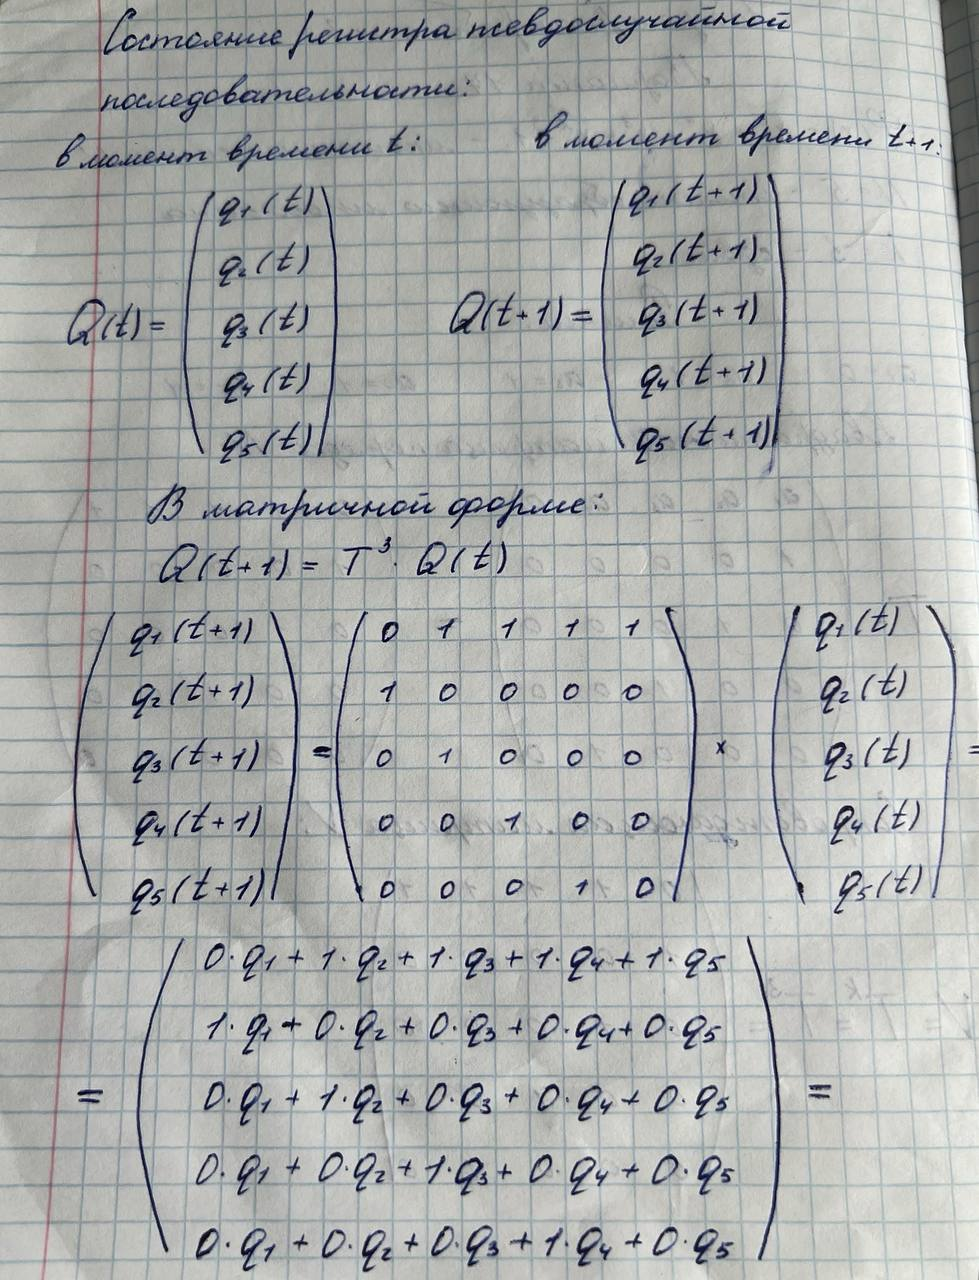 Состояние регистра псевдослучайной
последовательности:
в момент времени t: в момент времени t+1:
q1(t) q1(t+1)
q2(t) q2(t+1)
Q(t) = q3(t) Q(t+1) = q3(t+1)
q4(t) q4(t+1)
q5(t) q5(t+1)
В матричной форме:
Q(t+1) = T³ · Q(t)
q1(t+1) 0 1 1 1 1 q1(t)
q2(t+1) 1 0 0 0 0 q2(t)
q3(t+1) = 0 1 0 0 0 × q3(t) =
q4(t+1) 0 0 1 0 0 q4(t)
q5(t+1) 0 0 0 1 0 q5(t)
0·q1 + 1·q2 + 1·q3 + 1·q4 + 1·q5
1·q1 + 0·q2 + 0·q3 + 0·q4 + 0·q5
= 0·q1 + 1·q2 + 0·q3 + 0·q4 + 0·q5 =
0·q1 + 0·q2 + 1·q3 + 0·q4 + 0·q5
0·q1 + 0·q2 + 0·q3 + 1·q4 + 0·q5